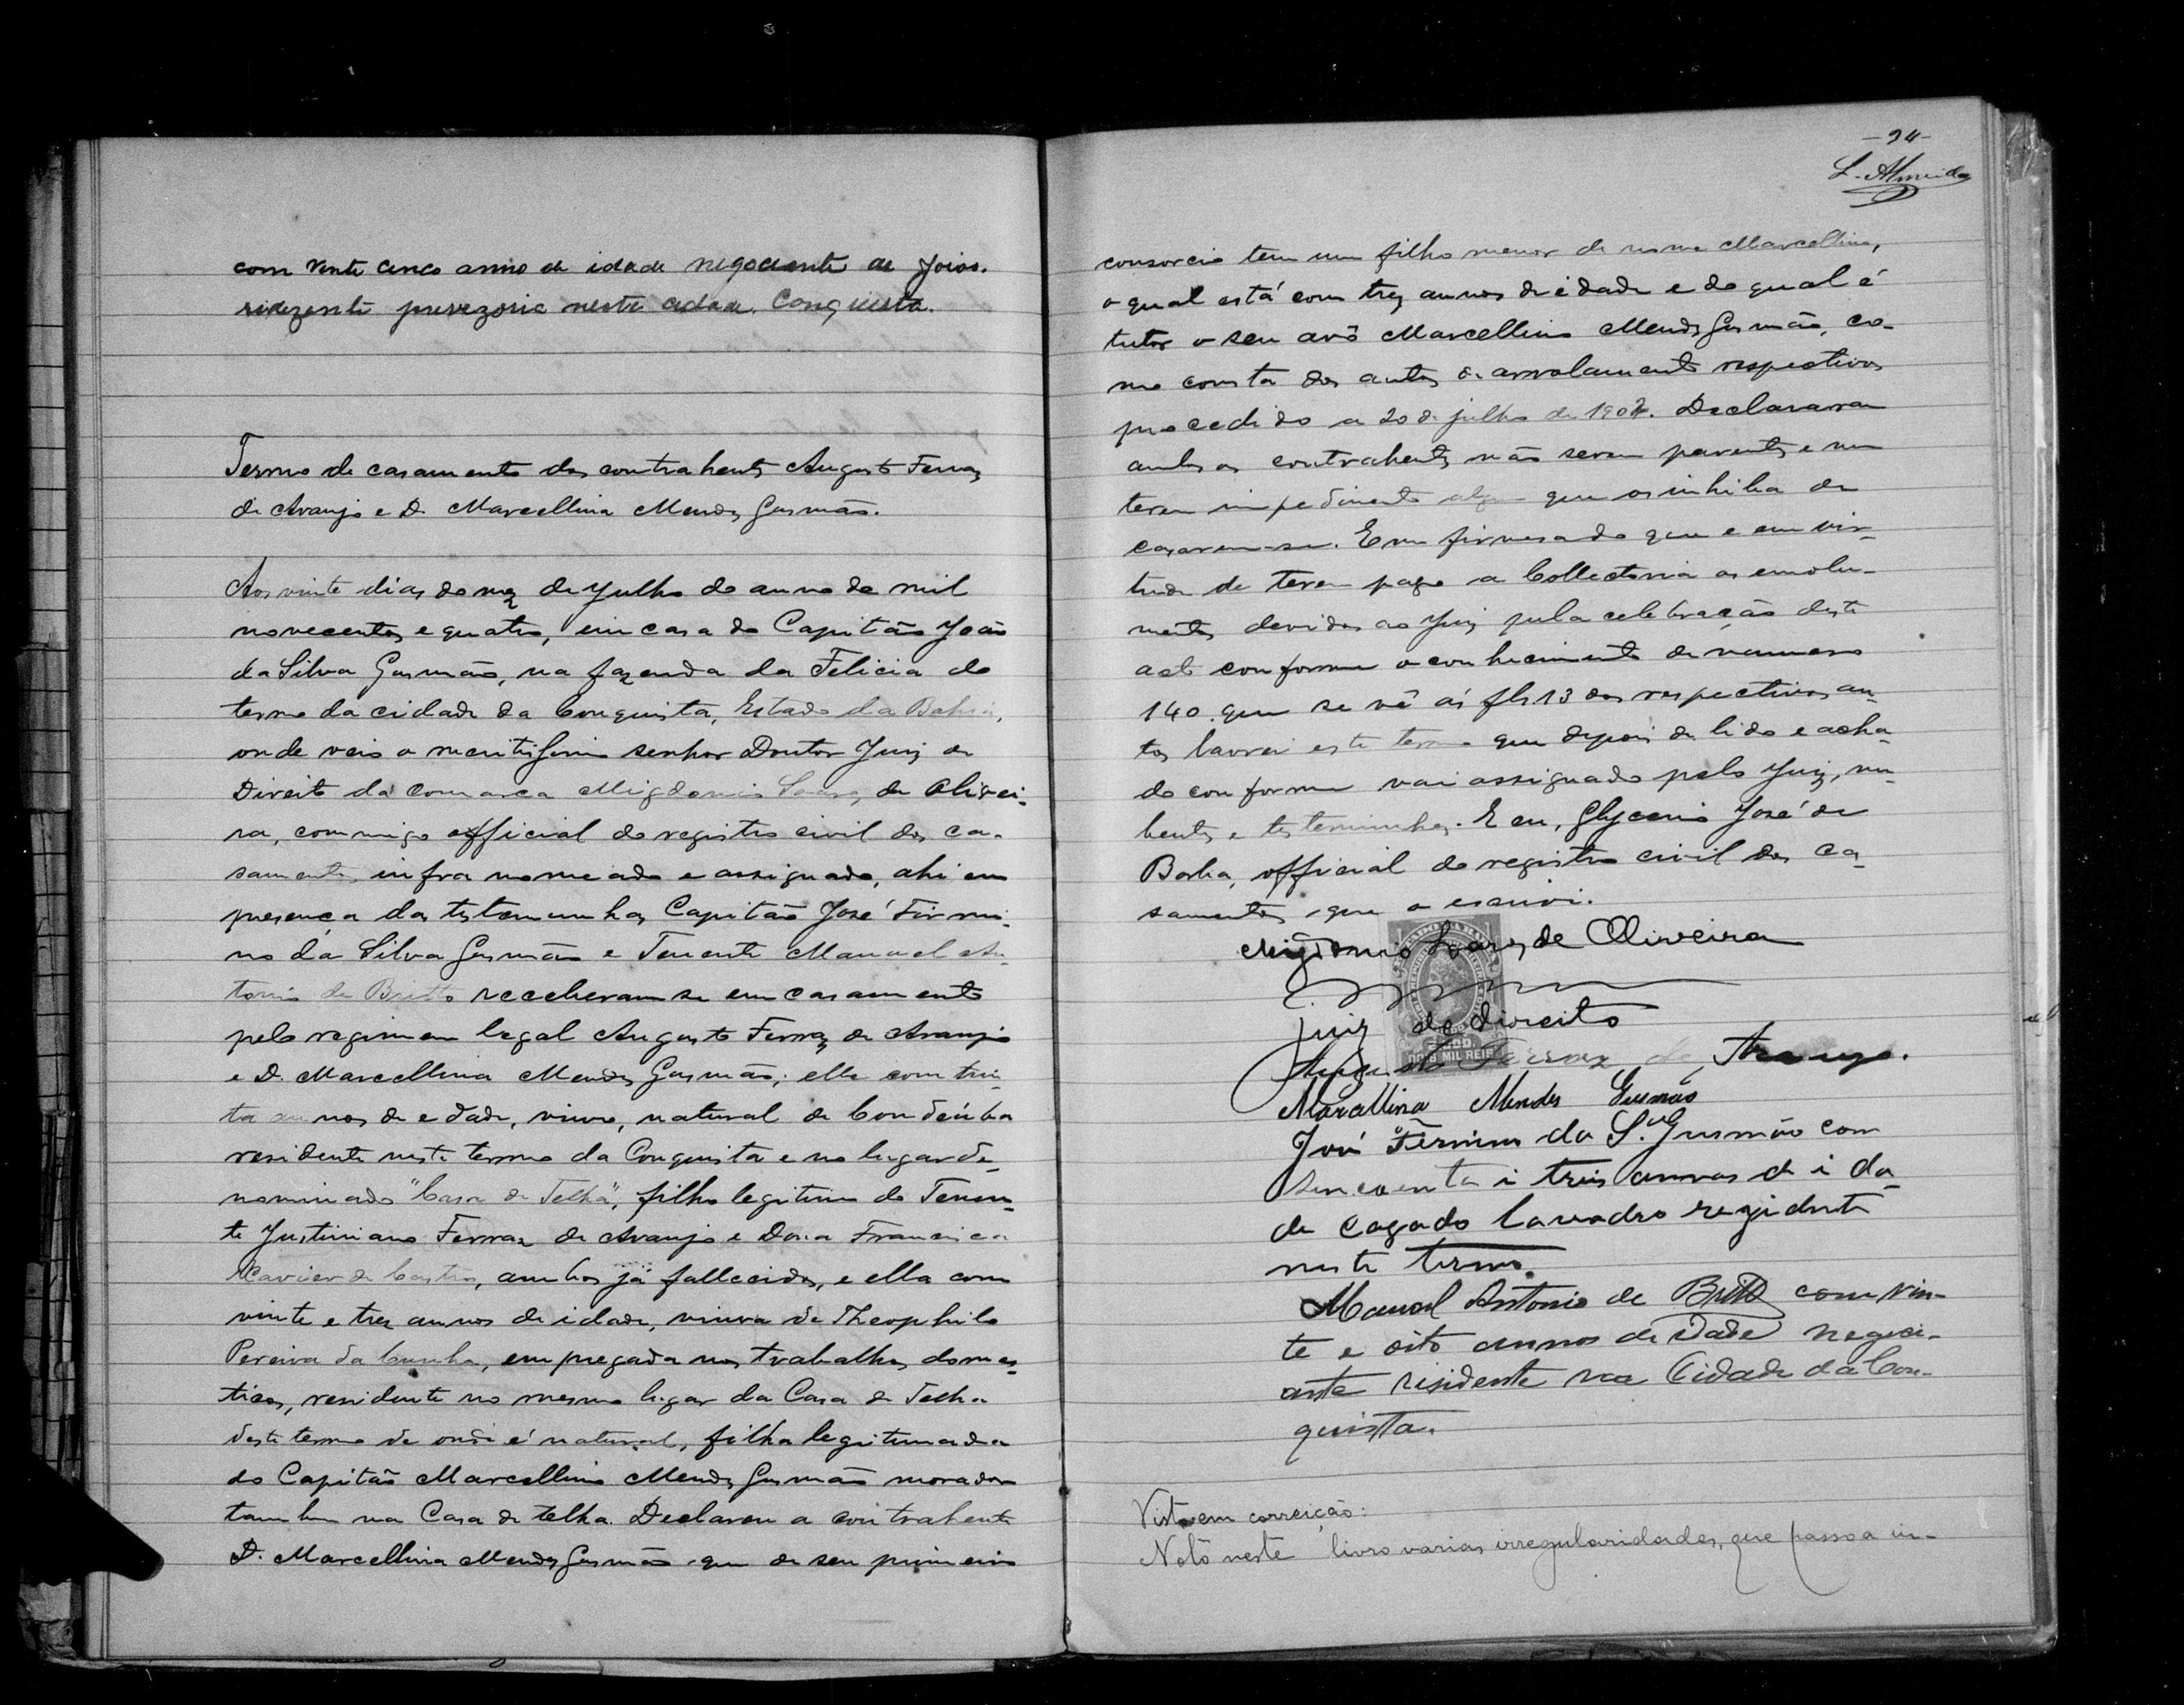 com vinte cinco anno de idade negociante de Joias.
rezezente provezorio neste cidade. Conquista.
Termo de casamento dos contrahentes Augusto Ferraz
de Araujo e D. Marcellina Mendes Gusmão.
Aos vinte dias do mez de Julho do anno de mil
novecentos e quatro, em casa do Capitão João
da Silva Gusmão, na fazenda da Felicia do
termo da cidade da Conquista, Estado da Bahia,
onde veio o meritissimo senhor Doutor Juiz de
Direito da comarca Migdonio Soares de Olivei-
ra, commigo official do registro civil dos ca-
samentos infra nomeado e assignado, ahi em
presença das testemunhas Capitão José Firmi-
no da Silva Gusmão e Tenente Manuel An-
tonio de Britto receberam se em casamento
pelo regimen legal Augusto Ferraz de Araujo
e D. Marcellina Mendes Gusmão; elle com trin-
ta annos de edade, viuvo, natural de Condeúba
residente neste termo da Conquista e no lugar de-
nominado "Casa de Telha", filho legitimo do Tenen-
te Justiniano Ferraz de Araujo e Dona Francisca
Xavier de Castro, ambos já fallecidos, e ella com
vinte e trez annos de idade, viuva de Theophilo
Pereira da Cunha, empregada nos trabalhos domes-
ticos, residente no mesmo lugar da Casa de Telha
deste termo de onde é natural, filha legitimada
do Capitão Marcellino Mendes Gusmão morador
tambem na Casa de telha. Declarou a contrahente
D. Marcellina Mendes Gusmão que de seu primeiro
-94-
L. Almeida
consorcio tem um filho menor de nome Marcellino,
o qual está com trez annos de idade e do qual é
tutor o seu avô Marcellino Mendes Gusmão, co-
mo consta dos autos de arrolamento respectivos
procedido a 20 de julho de 1902. Declararam
ambos os contrahentes não serem parentes e nem
terem impedimento algum que os inhiba de
casarem-se. E em firmesa do que e em vir-
tude de terem pago a Collectoria os emolu-
mentos devidos ao Juiz pela celebração deste
acto conforme o conhecimento de numero
140. que se vê ás fls 13 dos respectivos au-
tos lavrei este termo que depois de lido e acha-
do conforme vai assignado pelo Juiz, nu-
bentes e testemunhas. E eu, Glycerio José de
Borba, official do registro civil dos ca-
samentos, que o escrevi.
Migdonio Soares de Oliveira
juiz de direito
DOIS MIL REIS
Augusto Ferraz de Araujo.
Marcellina Mendes Gusmão
José Fermino da S.ª Gusmão com
sencoenta i treis annos de i da-
de cazado lavrador rezidente
neste termo.
Manoel Antonio de Britto com vin-
te e oito annos de idade negoci-
ante residente na Cidade da Con-
quista.
Visto em correição:
Noto neste livro varias irregularidades, que passo a in-